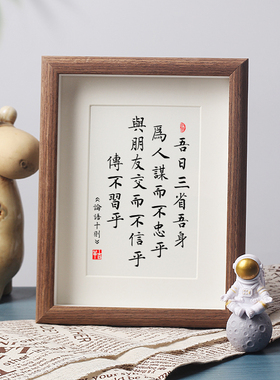 吾日三省吾身
爲人謀而不忠乎
與朋友交而不信乎
傳不習乎
《論語十則》